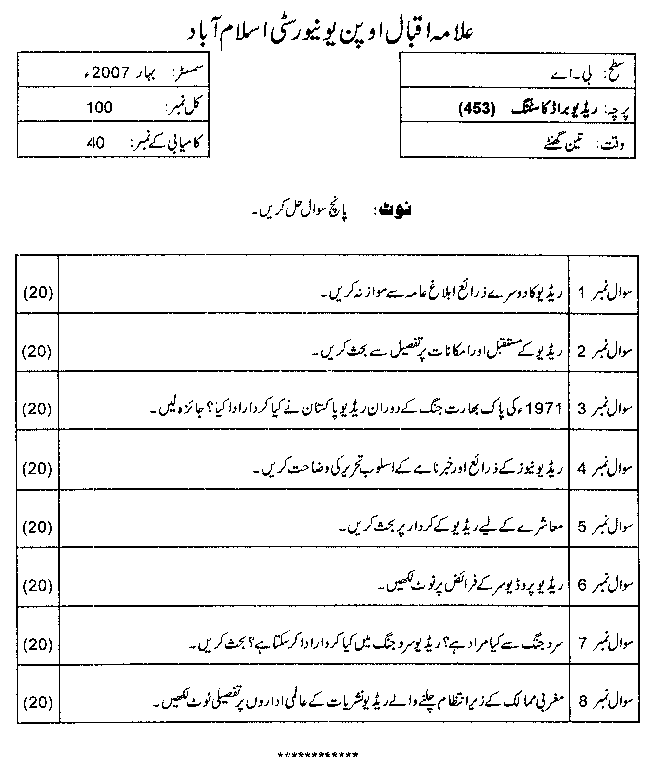 علامہ اقبال اوپن یونیورسٹی اسلام آباد
سطح: بی۔اے
پرچہ: ریڈیو براڈ کاسٹنگ (453)
وقت: تین گھنٹے
سمسٹر: بہار 2007ء
کل نمبر: 100
کامیابی کے نمبر: 40
نوٹ: پانچ سوال حل کریں۔
سوال نمبر 1 ریڈیو کا دوسرے ذرائع ابلاغ عامہ سے موازنہ کریں۔ (20)
سوال نمبر 2 ریڈیو کے مستقبل اور امکانات پر تفصیل سے بحث کریں۔ (20)
سوال نمبر 3 1971ء کی پاک بھارت جنگ کے دوران ریڈیو پاکستان نے کیا کردار ادا کیا؟ جائزہ لیں۔ (20)
سوال نمبر 4 ریڈیو نیوز کے ذرائع اور خبرنامے کے اسلوب تحریر کی وضاحت کریں۔ (20)
سوال نمبر 5 معاشرے کے لیے ریڈیو کے کردار پر بحث کریں۔ (20)
سوال نمبر 6 ریڈیو پروڈیوسر کے فرائض پر نوٹ لکھیں۔ (20)
سوال نمبر 7 سرد جنگ سے کیا مراد ہے؟ ریڈیو سرد جنگ میں کیا کردار ادا کر سکتا ہے؟ بحث کریں۔ (20)
سوال نمبر 8 مغربی ممالک کے زیر انتظام چلنے والے ریڈیو نشریات کے عالمی اداروں پر تفصیلی نوٹ لکھیں۔ (20)
************